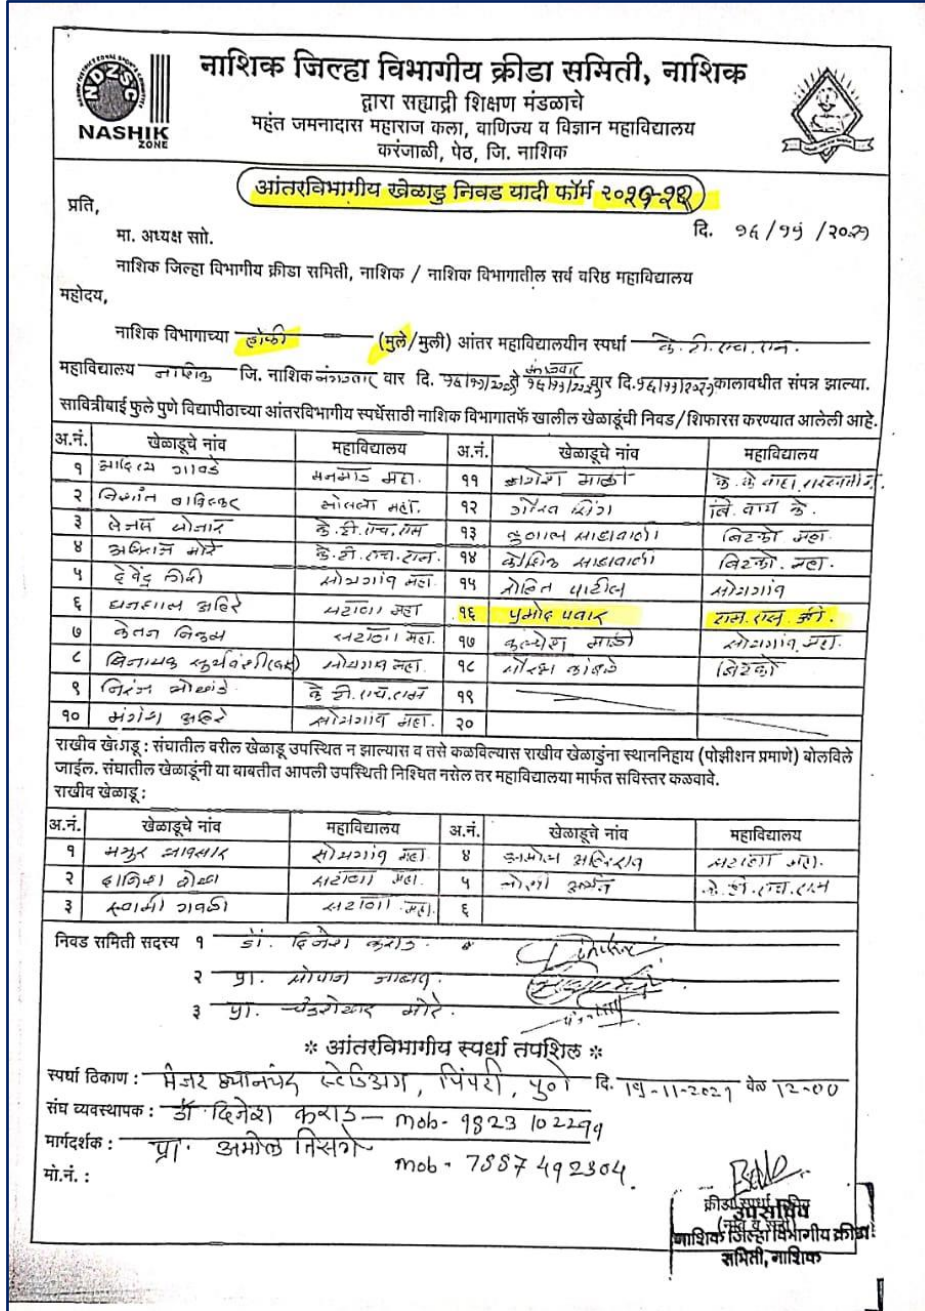 नाशिक जिल्हा विभागीय क्रीडा समिती, नाशिक
द्वारा सह्याद्री शिक्षण मंडळाचे
महंत जमनादास महाराज कला, वाणिज्य व विज्ञान महाविद्यालय
करंजाळी, पेठ, जि. नाशिक
NDZSC
NASHIK
ZONE
आंतरविभागीय खेळाडु निवड यादी फॉर्म २०२१-२२
प्रति,
दि. १६/११/२०२१
मा. अध्यक्ष सो.
नाशिक जिल्हा विभागीय क्रीडा समिती, नाशिक / नाशिक विभागातील सर्व वरिष्ठ महाविद्यालय
महोदय,
नाशिक विभागाच्या हॉकी (मुले/मुली) आंतर महाविद्यालयीन स्पर्धा के. टी. एच. एम.
महाविद्यालय नाशिक जि. नाशिक मंगळवार वार दि. १६/११/२०२१ ते मंगळवार वार दि. १६/११/२०२१ कालावधीत संपन्न झाल्या.
सावित्रीबाई फुले पुणे विद्यापीठाच्या आंतरविभागीय स्पर्धेसाठी नाशिक विभागातर्फे खालील खेळाडूंची निवड/शिफारस करण्यात आलेली आहे.
अ.नं. खेळाडूचे नांव महाविद्यालय अ.नं. खेळाडूचे नांव महाविद्यालय
१ आदित्य गावडे मनमाड महा. ११ के. के. वाघ
२ निशांत १२ गौरव सिंग व्हि. वाय के.
३ के. टी. एच. एम १३ कुणाल बिटको महा.
४ अभिराज मोरे के. टी. एच. एम. १४ कौशिक बिटको. महा.
५ देवेंद्र सोयगांव महा. १५ रोहित पाटील सोयगांव
६ धनशाल अहिरे सटाणा महा १६ प्रमोद पवार एम. एस. जी.
७ केतन निकम सटाणा महा. १७ सोयगांव महा.
८ विनायक सूर्यवंशी सोयगाव महा. १८ सौरभ कांबळे बिटको
९ के. टी. एच. एम १९
१० मंगेश अहिरे सोयगांव महा. २०
राखीव खेळाडू : संघातील वरील खेळाडू उपस्थित न झाल्यास व तसे कळविल्यास राखीव खेळाडुंना स्थाननिहाय (पोझीशन प्रमाणे) बोलविले
जाईल. संघातील खेळाडूंनी या बाबतीत आपली उपस्थिती निश्चित नसेल तर महाविद्यालया मार्फत सविस्तर कळवावे.
राखीव खेळाडू :
अ.नं. खेळाडूचे नांव महाविद्यालय अ.नं. खेळाडूचे नांव महाविद्यालय
१ मयुर सोयगांव महा. ४ सटाणा महा.
२ सटाणा महा. ५ के. टी. एच. एम
३ स्वामी गवळी सटाणा महा. ६
निवड समिती सदस्य १ डॉ. दिनेश कराड.
२ प्रा. सोपान जाधव.
३ प्रा. चंद्रशेखर मोरे.
* आंतरविभागीय स्पर्धा तपशिल *
स्पर्धा ठिकाण : मेजर ध्यानचंद स्टेडिअम, पिंपरी, पुणे दि. 19-11-2021 वेळ 12-00
संघ व्यवस्थापक : डॉ. दिनेश कराड - mob- 9823102299
मार्गदर्शक : प्रा. अमोल
मो.नं. : mob - 7887492304.
उपसचिव
नाशिक जिल्हा विभागीय क्रीडा
समिती, नाशिक